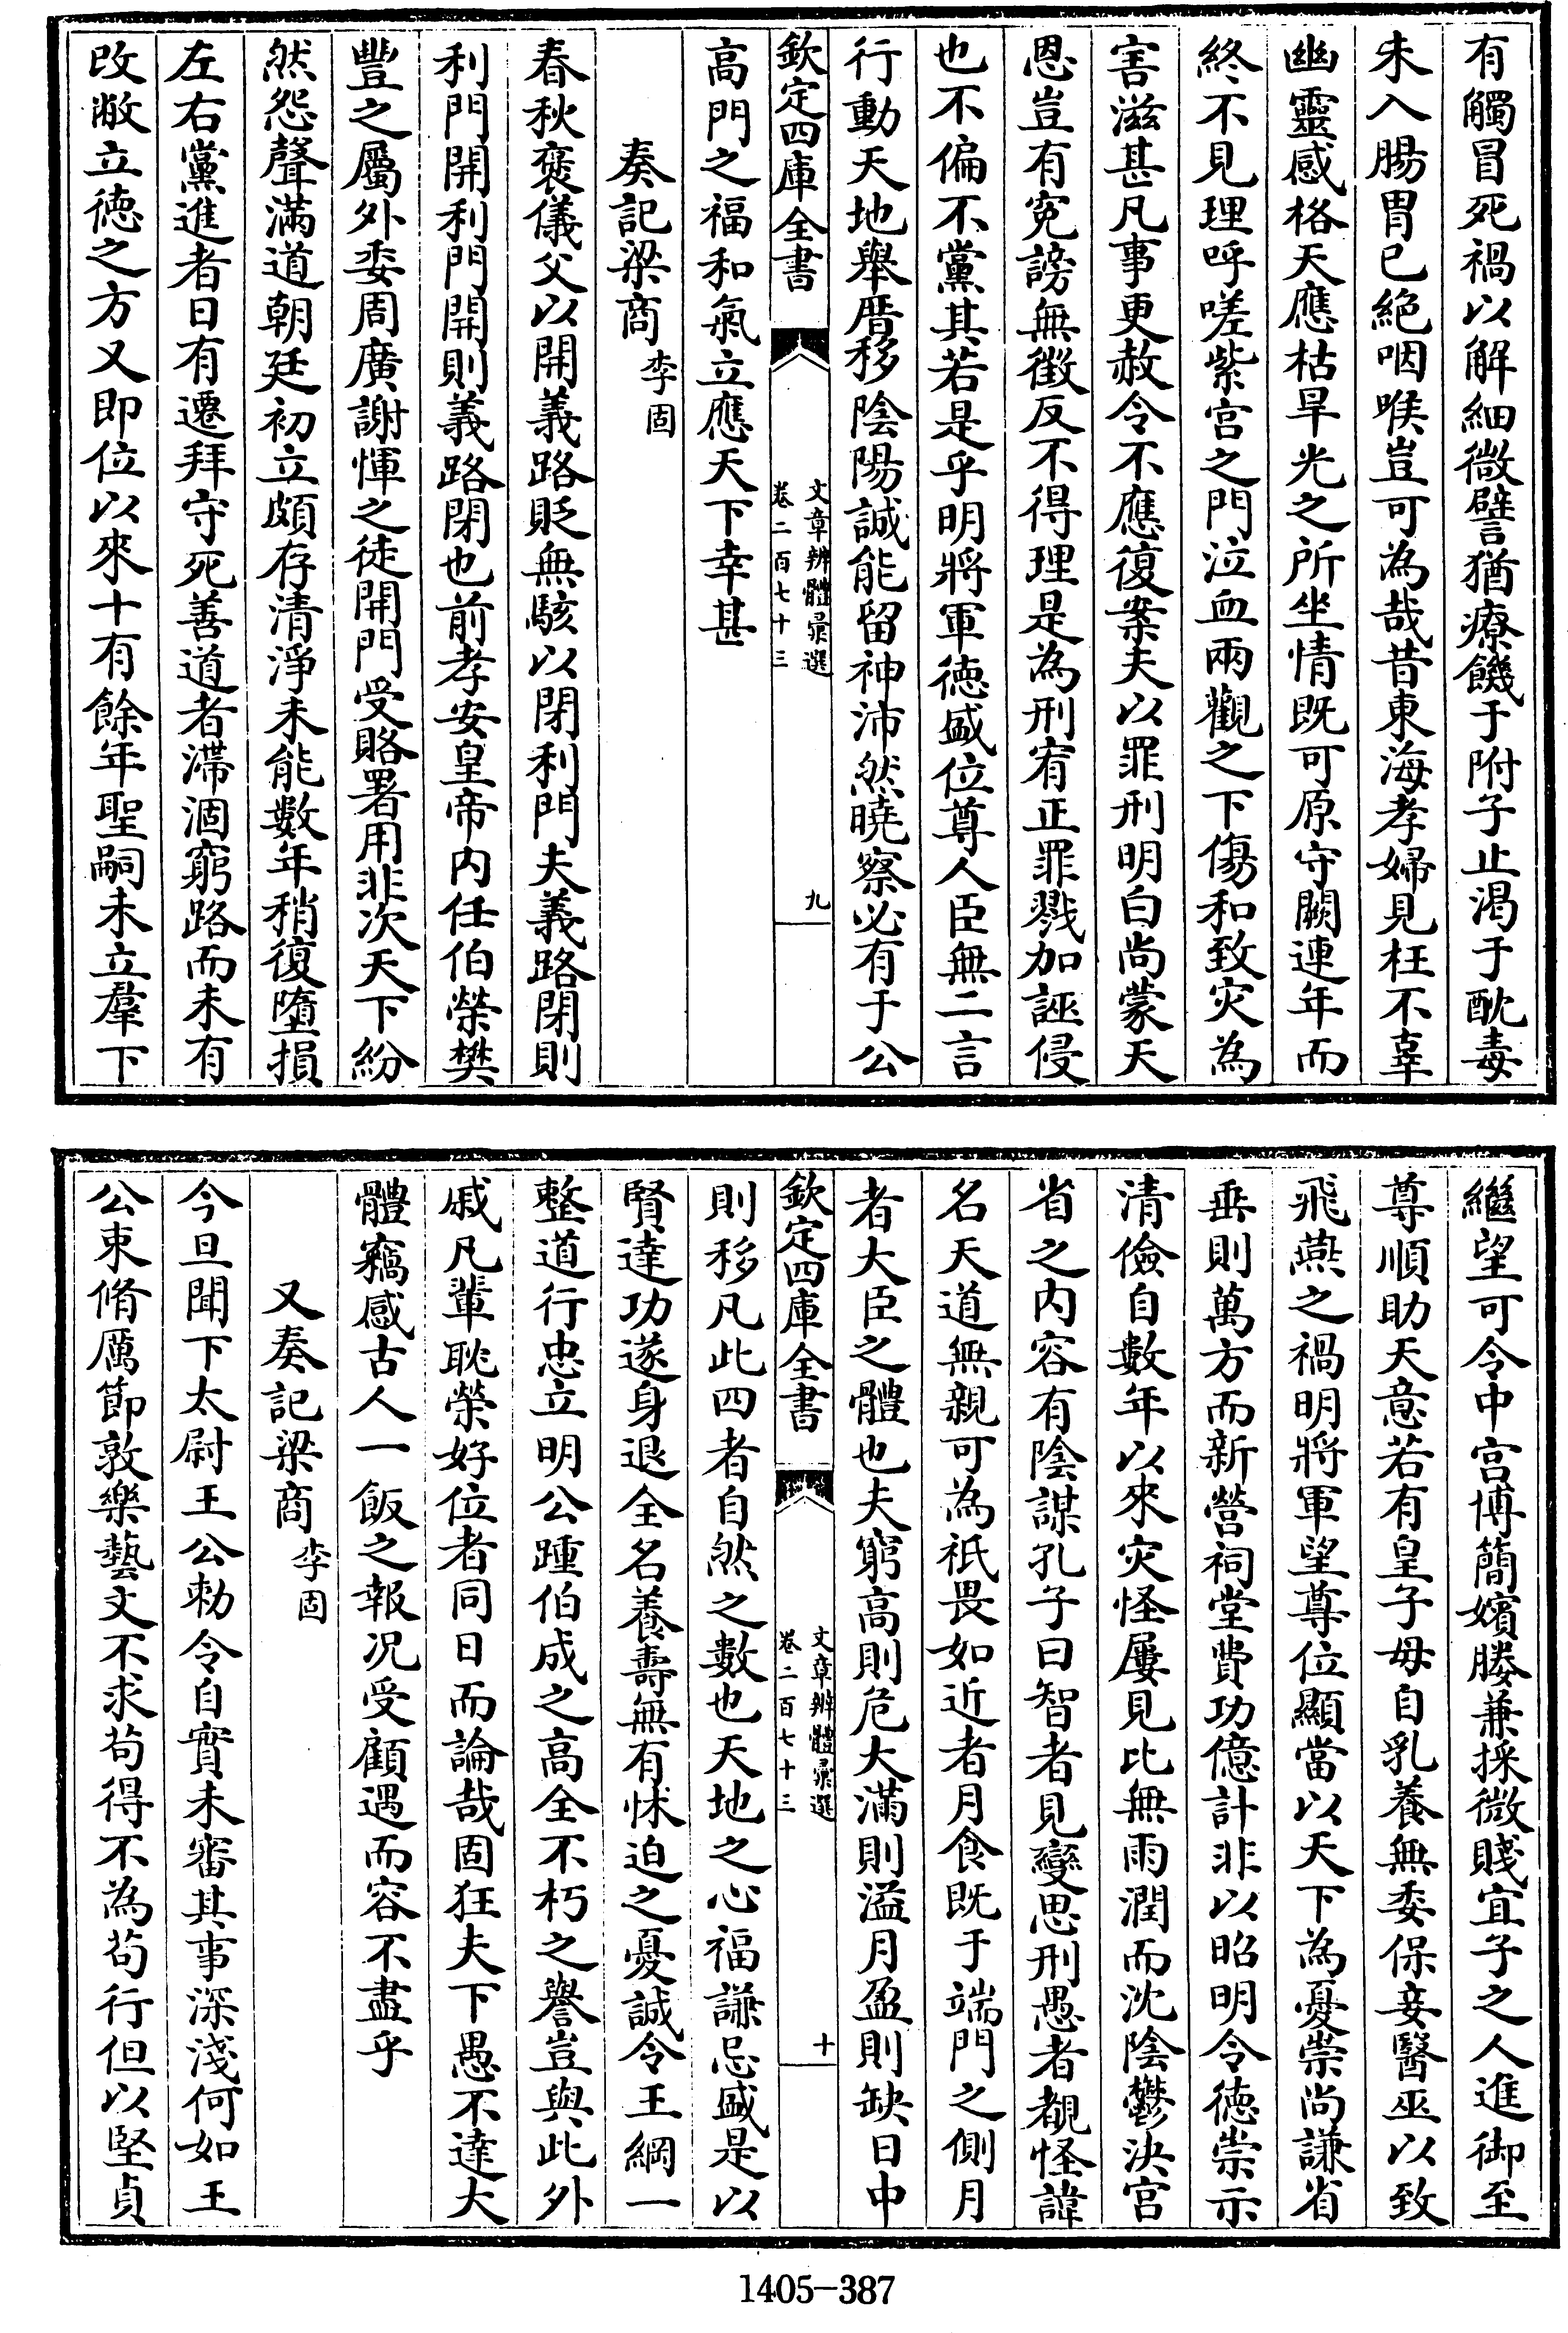 有觸冒死禍以解細微譬猶療饑于附子止渴于酖毒
未入腸胃已絶咽喉豈可為哉昔東海孝婦見枉不辜
幽靈感格天應枯旱光之所坐情既可原守闕連年而
終不見理呼嗟紫宫之門泣血兩觀之下傷和致灾為
害滋甚凡事更赦令不應復案夫以罪刑明白尚蒙天
恩豈有寃謗無徵反不得理是為刑宥正罪戮加誣侵
也不偏不黨其若是乎明將軍德盛位尊人臣無二言
行動天地舉厝移陰陽誠能留神沛然曉察必有于公
欽定四庫全書
文章辨體彙選
卷二百七十三
九
高門之福和氣立應天下幸甚
奏記梁商 李固
春秋褒儀父以開義路貶無駭以閉利門夫義路閉則
利門開利門開則義路閉也前孝安皇帝内任伯榮樊
豐之屬外委周廣謝惲之徒開門受賂署用非次天下紛
然怨聲滿道朝廷初立頗存清淨未能數年稍復墮損
左右黨進者日有遷拜守死善道者滯涸窮路而未有
改敝立德之方又即位以來十有餘年聖嗣未立羣下
繼望可令中宫博簡嬪媵兼採微賤宜子之人進御至
尊順助天意若有皇子母自乳養無委保妾醫巫以致
飛燕之禍明將軍望尊位顯當以天下為憂崇尚謙省
垂則萬方而新營祠堂費功億計非以昭明令德崇示
清儉自數年以來灾怪屢見比無雨潤而沈陰鬱泱宫
省之内容有陰謀孔子曰智者見變思刑愚者覩怪諱
名天道無親可為祇畏如近者月食既于端門之側月
者大臣之體也夫窮高則危大滿則溢月盈則缺日中
欽定四庫全書
文章辨體彙選
卷二百七十三
十
則移凡此四者自然之數也天地之心福謙忌盛是以
賢達功遂身退全名養壽無有怵迫之憂誠令王綱一
整道行忠立明公踵伯成之高全不朽之譽豈與此外
戚凡輩耽榮好位者同日而論哉固狂夫下愚不達大
體竊感古人一飯之報况受顧遇而容不盡乎
又奏記梁商 李固
今旦聞下太尉王公勅令自實未審其事深淺何如王
公束脩厲節敦樂藝文不求茍得不為茍行但以堅貞
1405-387